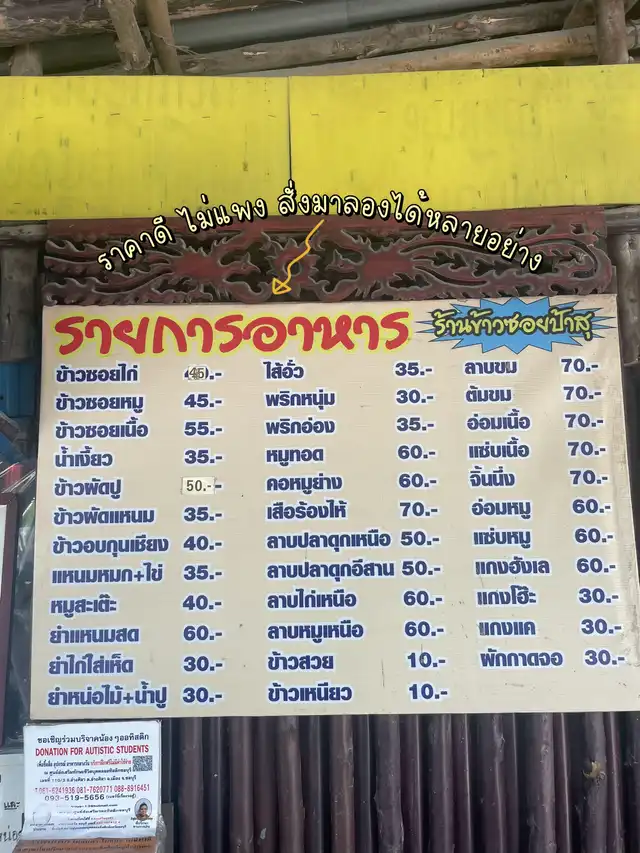 ราคาดี ไม่แพง สั่งมาลองได้หลายอย่าง
รายการอาหาร
ร้านข้าวซอยป้าสุ
ข้าวซอยไก่ 45.-
ข้าวซอยหมู 45.-
ข้าวซอยเนื้อ 55.-
น้ำเงี้ยว 35.-
ข้าวผัดปู 50.-
ข้าวผัดแหนม 35.-
ข้าวอบกุนเชียง 40.-
แหนมหมก+ไข่ 35.-
หมูสะเต๊ะ 40.-
ยำแหนมสด 60.-
ยำไก่ใส่เห็ด 30.-
ยำหน่อไม้+น้ำปู 30.-
ไส้อั่ว 35.-
พริกหนุ่ม 30.-
พริกอ่อง 35.-
หมูทอด 60.-
คอหมูย่าง 60.-
เสือร้องไห้ 70.-
ลาบปลาดุกเหนือ 50.-
ลาบปลาดุกอีสาน 50.-
ลาบไก่เหนือ 60.-
ลาบหมูเหนือ 60.-
ข้าวสวย 10.-
ข้าวเหนียว 10.-
ลาบขม 70.-
ต้มขม 70.-
อ่อมเนื้อ 70.-
แซ่บเนื้อ 70.-
จิ้นนึ่ง 70.-
อ่อมหมู 60.-
แซ่บหมู 60.-
แกงฮังเล 60.-
แกงโฮ๊ะ 30.-
แกงแค 30.-
ผักกาดจอ 30.-
ขอเชิญร่วมบริจาคน้องๆออทิสติก
DONATION FOR AUTISTIC STUDENTS
081-6241936 081-7620771 088-8916451
093-519-5656